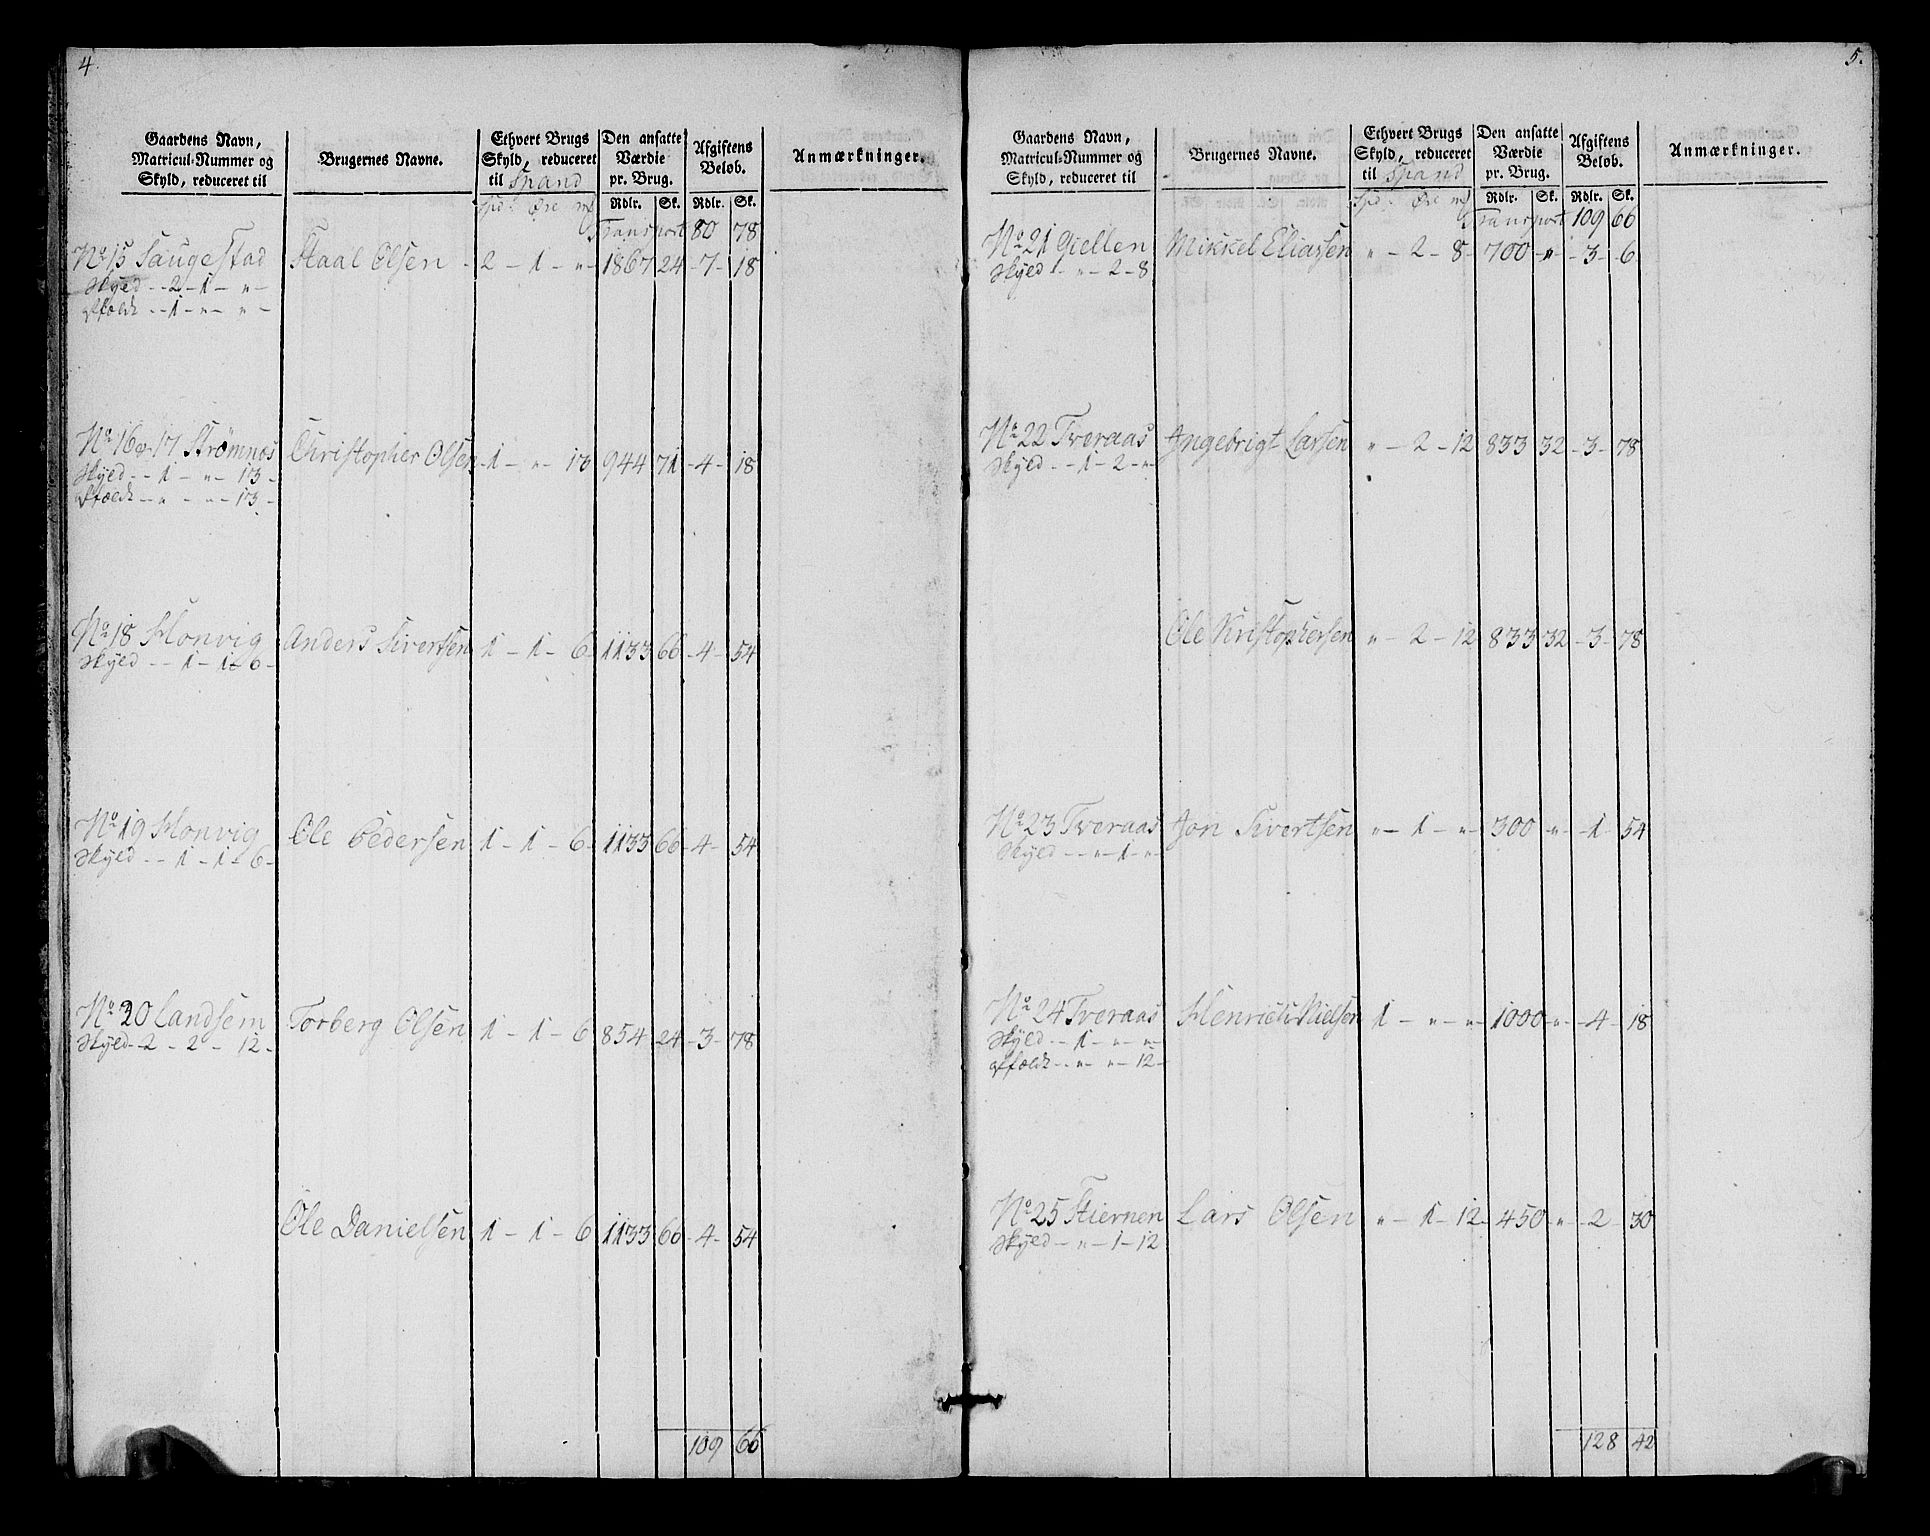 4
Gaardens Navn, Matricul-Nummer og Skyld, reduceret til
Brugernes Navne.
Ethvert Brugs Skyld, reduceret til Spand
Den ansatte Værdie pr. Brug.
Afgiftens Beløb.
Anmærkninger.
Spd. Øre
Rdlr. Sk. Rdlr. Sk.
Transport 80 78
No 15 Saugestad Staal Olsen - 2 - 1 - „ - 1867 24 - 7 - 18
Skyld - - 2 - 1 - „ -
- - 1 - „ - „ -
No 16 & 17 Strømnæs Christopher Olsen - 1 - „ - 13 944 71 - 4 - 18
Skyld - - 1 - „ - 13 -
- „ - „ - 13 -
No 18 Honvig Anders Sivertsen 1 - 1 - 6 - 1133 66 - 4 - 54
Skyld - - 1 - 1 - 6 -
No 19 Honvig Ole Pedersen 1 - 1 - 6 - 1133 66 - 4 - 54
Skyld - - 1 - 1 - 6 -
No 20 Landsem Torberg Olsen 1 - 1 - 6 854 24 - 3 - 78
Skyld - 2 - 2 - 12 -
Ole Danielsen 1 - 1 - 6 1133 66 - 4 - 54
109 66
5.
Gaardens Navn, Matricul-Nummer og Skyld, reduceret til
Brugernes Navne.
Ethvert Brugs Skyld, reduceret til Spand
Den ansatte Værdie pr. Brug.
Afgiftens Beløb.
Anmærkninger.
Spd. Øre
Rdlr. Sk. Rdlr. Sk.
Transport 109 66
No 21 Giellen Mikkel Eliassen „ - 2 - 8 - 700 - „ - 3 - 6
Skyld - „ - 2 - 8
No 22 Tveraas Ingebrigt Larsen „ - 2 - 12 833 32 - 3 - 78
Skyld - - 1 - 2 - „ -
Ole Kristophersen „ - 2 - 12 833 32 - 3 - 78
No 23 Tveraas Jon Sivertsen „ - 1 - „ - 300 - „ - 1 - 54
Skyld - - „ - 1 - „ -
No 24 Tveraas Henrich Nielsen 1 - „ - „ - 1000 - „ - 4 - 18
Skyld - - 1 - „ - „ -
- - „ - „ - 12 -
No 25 Stiernen Lars Olsen „ - 1 - 12 - 450 „ - 2 - 30
Skyld - „ - 1 - 12
128 42